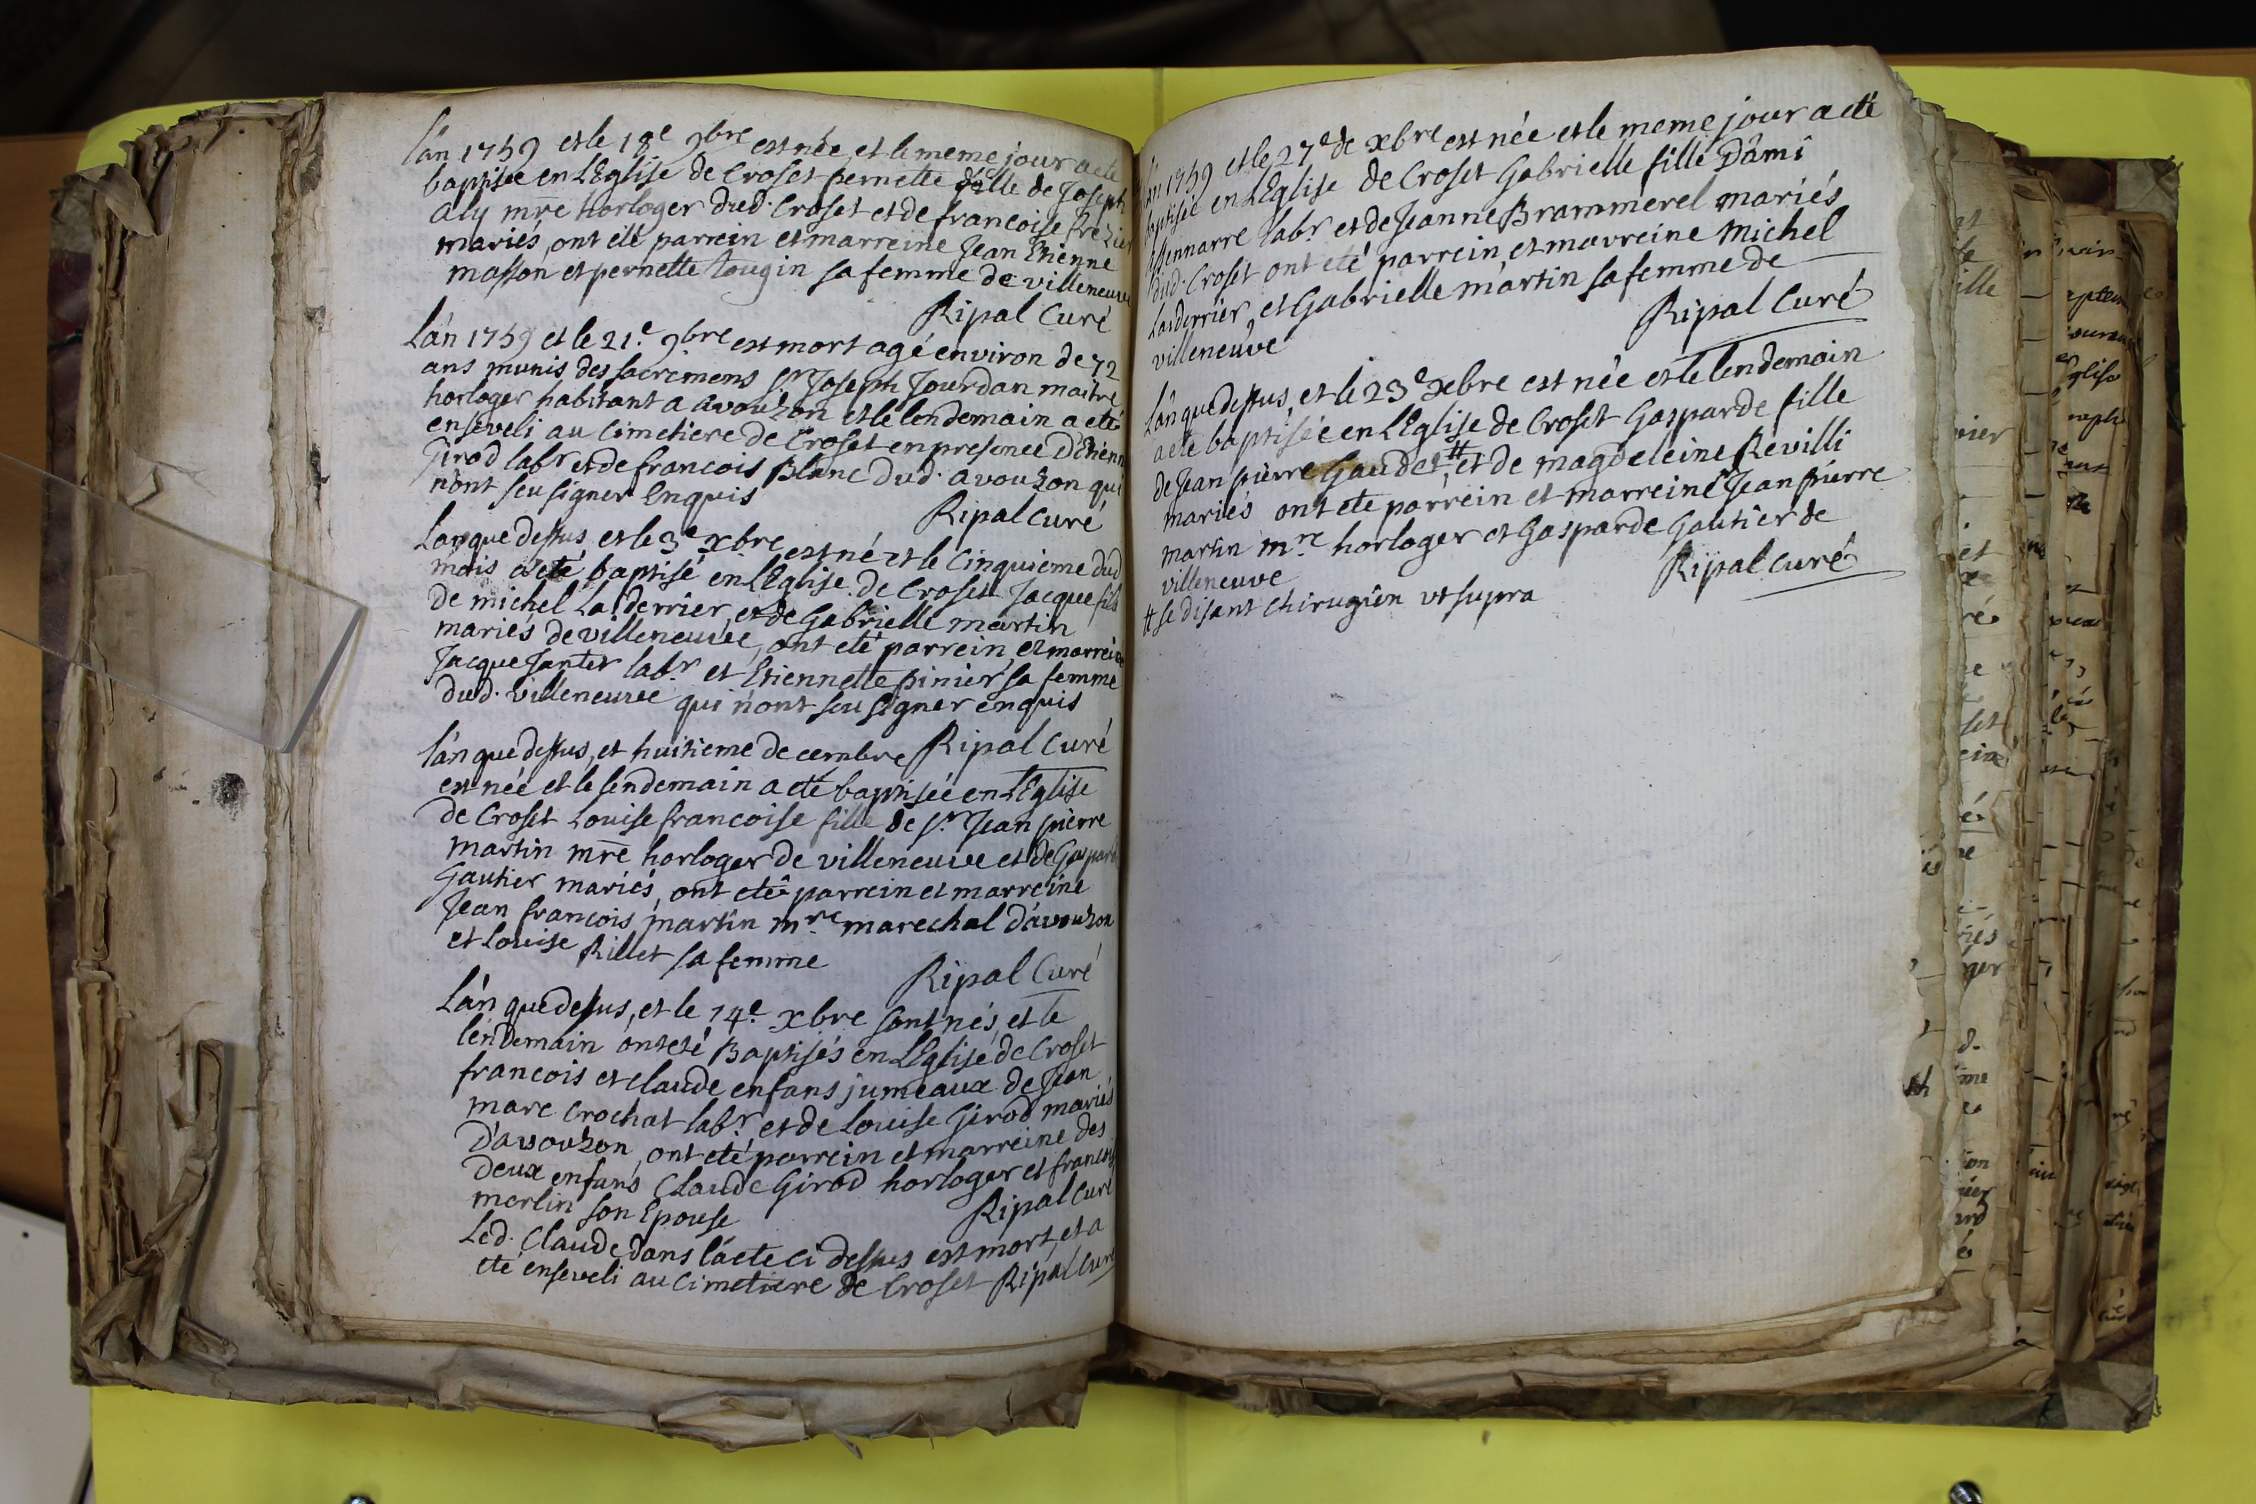 Lán 1759 et le 18e 9bre est née, et le meme jour a eté
baptisée en LEglise de Croset pernette fille de Joseph
aly mre horloger dud. Croset et de francoise frezier
mariés, ont eté parrein et marreine Jean Etienne
masson et pernette Tougin sa femme de villeneuve
Ripal Curé
Lán 1759 et le 21.e 9bre est mort agé environ de 72
ans munis des sacremens Sr Joseph Jourdan maitre
horloger habitant a avouzon et le lendemain a eté
enseveli au Cimetiere de Croset en presence d'Etienne
Girod labr et de francois Blanc dud. avouzon qui
nónt seu signer Enquis
Ripal Curé
Lán que dessus et le 3e xbre est né et le Cinquieme dud
mois a eté baptisé en LEglise de Croset Jacque fils
de michel Laiderrier, et de Gabrielle martin
mariés de villeneuvee, ont eté parrein, et marreine
Jacque Janter labr et Etiennette pinier sa femme
dud. villeneuvee qui nónt seu signer enquis
Lán que dessus, et huitieme decembre Ripal Curé
est née et le lendemain a eté baptisée en LEglise
de Croset Louise francoise fille de sr Jean pierre
martin mre horloger de villeneuve et de Gasparde
Gautier mariés, ont eté parrein et marreine
Jean francois martin mre marechal dávouzon
et Louise Rillet sa femme
Ripal Curé
Lán que dessus, et le 14e xbre sont nés, et le
lendemain ont eté Baptisés en LEglise de Croset
francois et claude enfans jumeaux de Jean
marc Crochat labr et de Louise Girod mariés
Dávouzon, ont eté parrein et marreine des
deux enfans Claude Girod horloger et francoise
merlin son Epouse
Ripal Curé
Led. Claude dans lácte ci dessus est mort, et a
eté enseveli au Cimetiere de Croset Ripal Curé
Lán 1759 et le 27e de xbre est née et le meme jour a eté
baptisée en LEglise de Croset Gabrielle fille Dámi
labr et de Jeanne Brammerel mariés
dud. Croset ont eté parrein, et marreine michel
Laiderrier, et Gabrielle martin sa femme de
villeneuve
Ripal Curé
Lán que dessus, et le 23e xbre est née et le lendemain
a eté baptisée en LEglise de Croset Gasparde fille
de Jean pierre Gaudet # et de magdeleine Revilli
mariés ont eté parrein et marreine Jean pierre
martin mre horloger et Gasparde Gautier de
villeneuve
Ripal Curé
# se disant chirugien ut supra